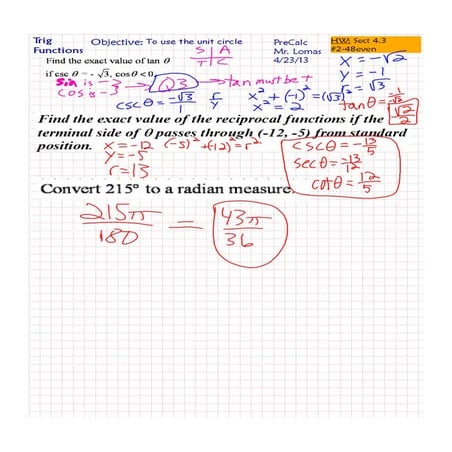 Trig Functions
Objective: To use the unit circle
PreCalc
Mr. Lomas
4/23/13
HW: Sect 4.3
#2-48even
S | A
T | C
Find the exact value of tan θ
if csc θ = - √3, cos θ < 0.
Sin is -
cos is -
Q3
tan must be +
csc θ = -√3/1
r/y
x² + (-1)² = (√3)²
x² = 2
x = -√2
y = -1
r = √3
tan θ =
√2/2
Find the exact value of the reciprocal functions if the
terminal side of θ passes through (-12, -5) from standard
position.
x = -12
y = -5
r = 13
(-5)² + (-12)² = r²
csc θ = -13/5
sec θ = -13/12
cot θ = 12/5
Convert 215° to a radian measure.
215π/180 = 43π/36